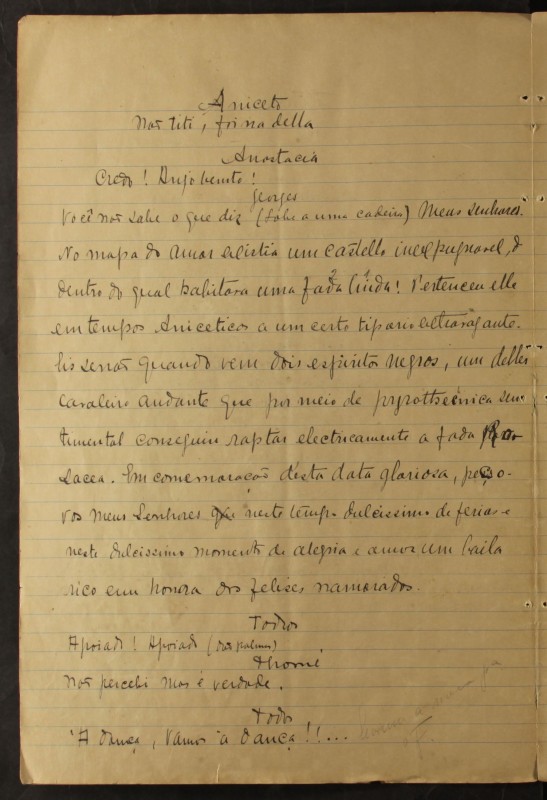 Aniceto
Nos Titi, foi na della
Anastacia
Credo! Anjo bento!
Georges
Você não sabe o que diz (Sobe a uma cadeira) Meus Senhores.
No mapa do amor existia um castello inexpugnavel, d
dentro do qual habitava uma fada linda! Pertenceu elle
em tempos Aniceticos a um certo tipano extravagante.
Eis senão quando vem dois espiritos negros, um delles
cavaleiro andante que por meio de pyrothecnica sen
timental conseguiu raptar electricamente a fada
lacea. Em comemoração d'esta data gloriosa, peço-
vos meus Senhores neste tempo dulcissimo de ferias e
neste dulcissimo momento de alegria e amor um baila
rico em honra dos felises namorados.
Todos
Apoiado! Apoiado (dão palmas)
Thomé
Não percebi mas é verdade.
Todos
Á dança, Vamos á dança!!...